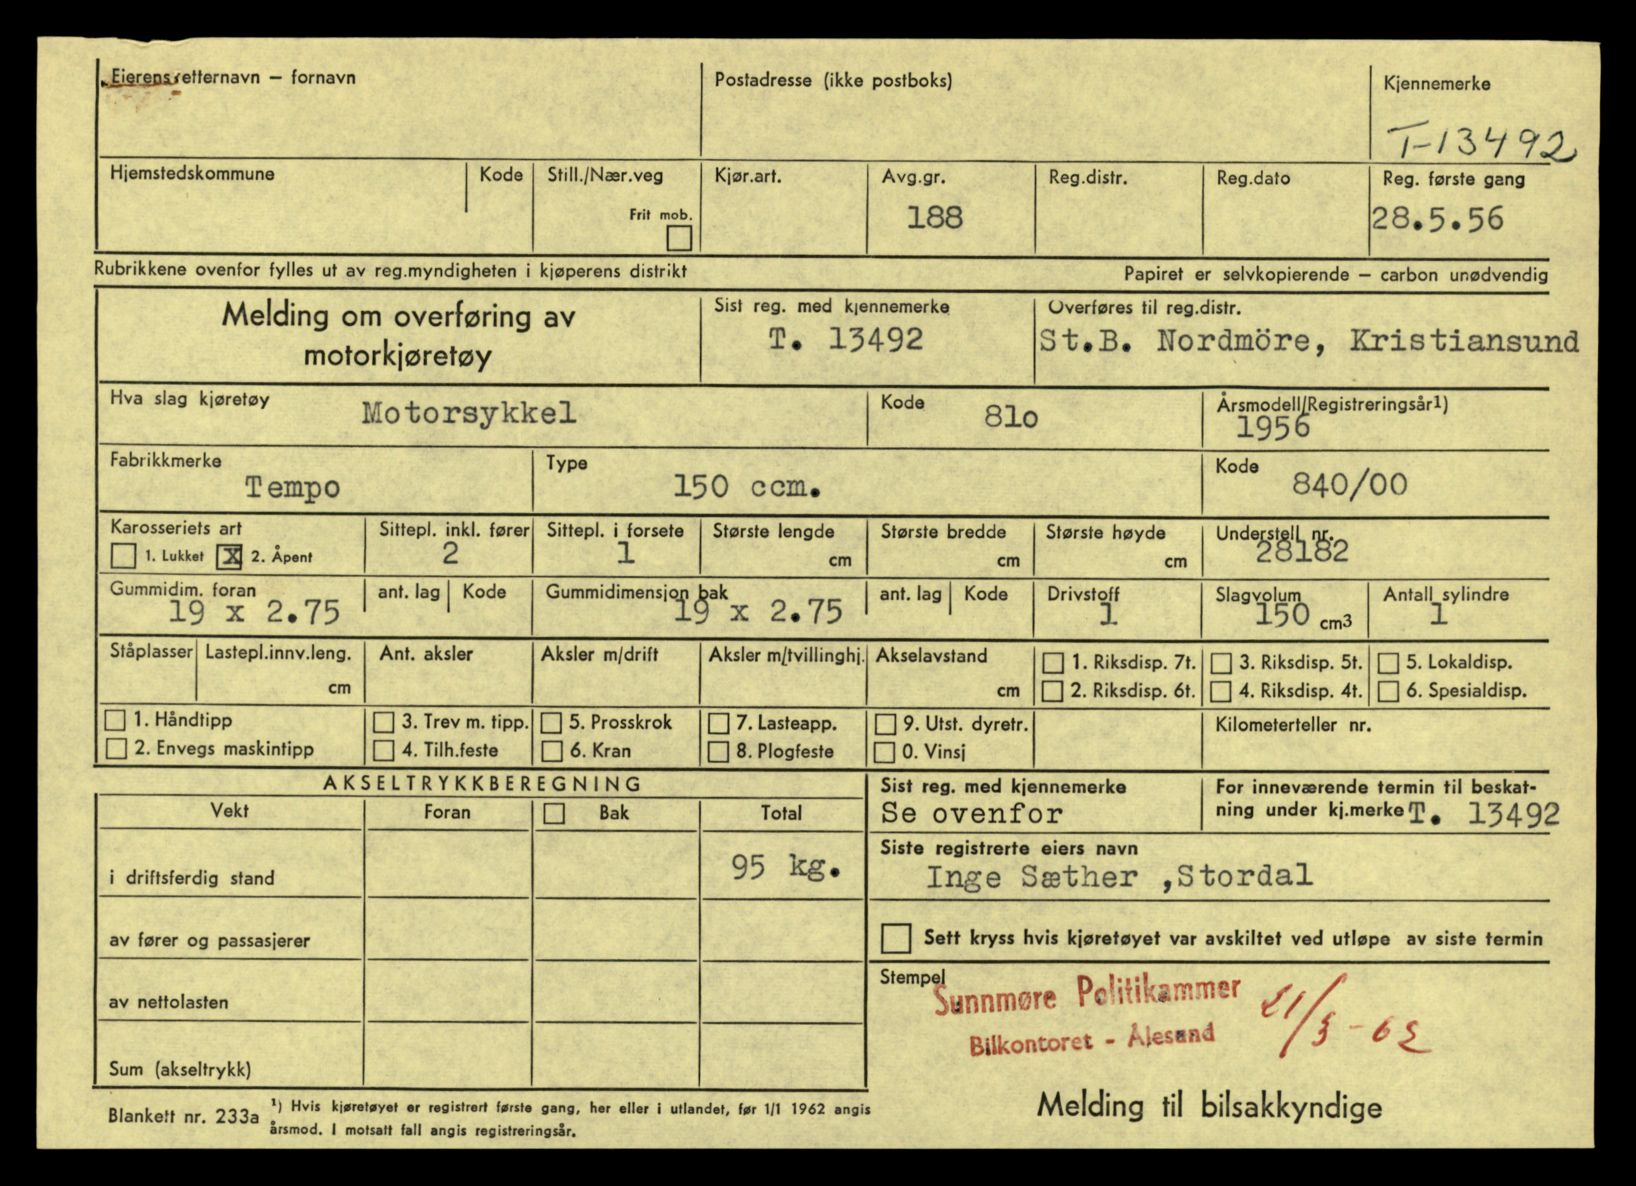 Eierens etternavn – fornavn
Postadresse (ikke postboks)
Kjennemerke
T-13492
Hjemstedskommune
Kode
Still./Nær.veg
Frit mob.
Kjør.art.
Avg.gr.
188
Reg.distr.
Reg.dato
Reg. første gang
28.5.56
Rubrikkene ovenfor fylles ut av reg.myndigheten i kjøperens distrikt
Papiret er selvkopierende – carbon unødvendig
Melding om overføring av
motorkjøretøy
Sist reg. med kjennemerke
T. 13492
Overføres til reg.distr.
St.B. Nordmöre, Kristiansund
Hva slag kjøretøy
Motorsykkel
Kode
81o
Årsmodell/Registreringsår1)
1956
Fabrikkmerke
Tempo
Type
150 ccm.
Kode
840/00
Karosseriets art
1. Lukket X 2. Åpent
Sittepl. inkl. fører
2
Sittepl. i forsete
1
Største lengde
cm
Største bredde
cm
Største høyde
cm
Understell nr.
28182
Gummidim. foran
19 x 2.75
ant. lag
Kode
Gummidimensjon bak
19 x 2.75
ant. lag
Kode
Drivstoff
1
Slagvolum
150 cm3
Antall sylindre
1
Ståplasser
Lastepl.innv.leng.
cm
Ant. aksler
Aksler m/drift
Aksler m/tvillinghj.
Akselavstand
cm
1. Riksdisp. 7t.
2. Riksdisp. 6t.
3. Riksdisp. 5t.
4. Riksdisp. 4t.
5. Lokaldisp.
6. Spesialdisp.
1. Håndtipp
2. Envegs maskintipp
3. Trev m. tipp.
4. Tilh.feste
5. Prosskrok
6. Kran
7. Lasteapp.
8. Plogfeste
9. Utst. dyretr.
0. Vinsj
Kilometerteller nr.
AKSELTRYKKBEREGNING
Vekt
Foran
Bak
Total
i driftsferdig stand
95 kg.
av fører og passasjerer
av nettolasten
Sum (akseltrykk)
Sist reg. med kjennemerke
Se ovenfor
For inneværende termin til beskat-
ning under kj.merke T. 13492
Siste registrerte eiers navn
Inge Sæther ,Stordal
Sett kryss hvis kjøretøyet var avskiltet ved utløpe av siste termin
Stempel
Sunnmøre Politikammer
Bilkontoret - Ålesund
Melding til bilsakkyndige
Blankett nr. 233a
1) Hvis kjøretøyet er registrert første gang, her eller i utlandet, før 1/1 1962 angis
årsmod. I motsatt fall angis registreringsår.